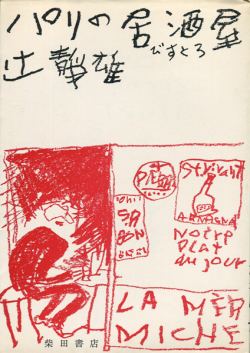 パリの居酒屋
びすとろ
辻静雄
St.Vivant
ARMAGNA
Notre
Plat
du jour
LA MÈR
MICHE
柴田書店